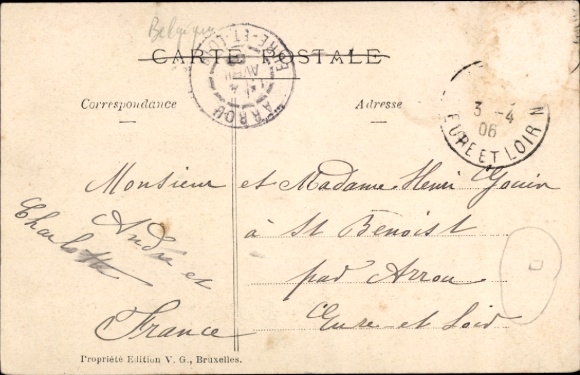 Belgique
CARTE POSTALE
ARROU
EURE-ET-LOIR
AVRIL
3 -4
06
EURE ET LOIR
Correspondance
Adresse
Monsieur et Madame Henri Gouin
André et
Charlotte
à St Benoist
par Arrou
Eure et Loir
France
Propriété Edition V. G., Bruxelles.